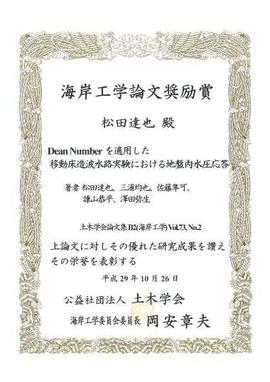 海岸工学論文奨励賞
松田達也 殿
Dean Number を適用した
移動床造波水路実験における地盤内水圧応答
著者 松田達也、三浦均也、佐藤隼可、
諫山恭平、澤田弥生
土木学会論文集 B2(海岸工学) Vol.73, No.2
上論文に対しその優れた研究成果を讃え
その栄誉を表彰する
平成 29 年 10 月 26 日
公益社団法人 土木学会
海岸工学委員会委員長 岡安章夫